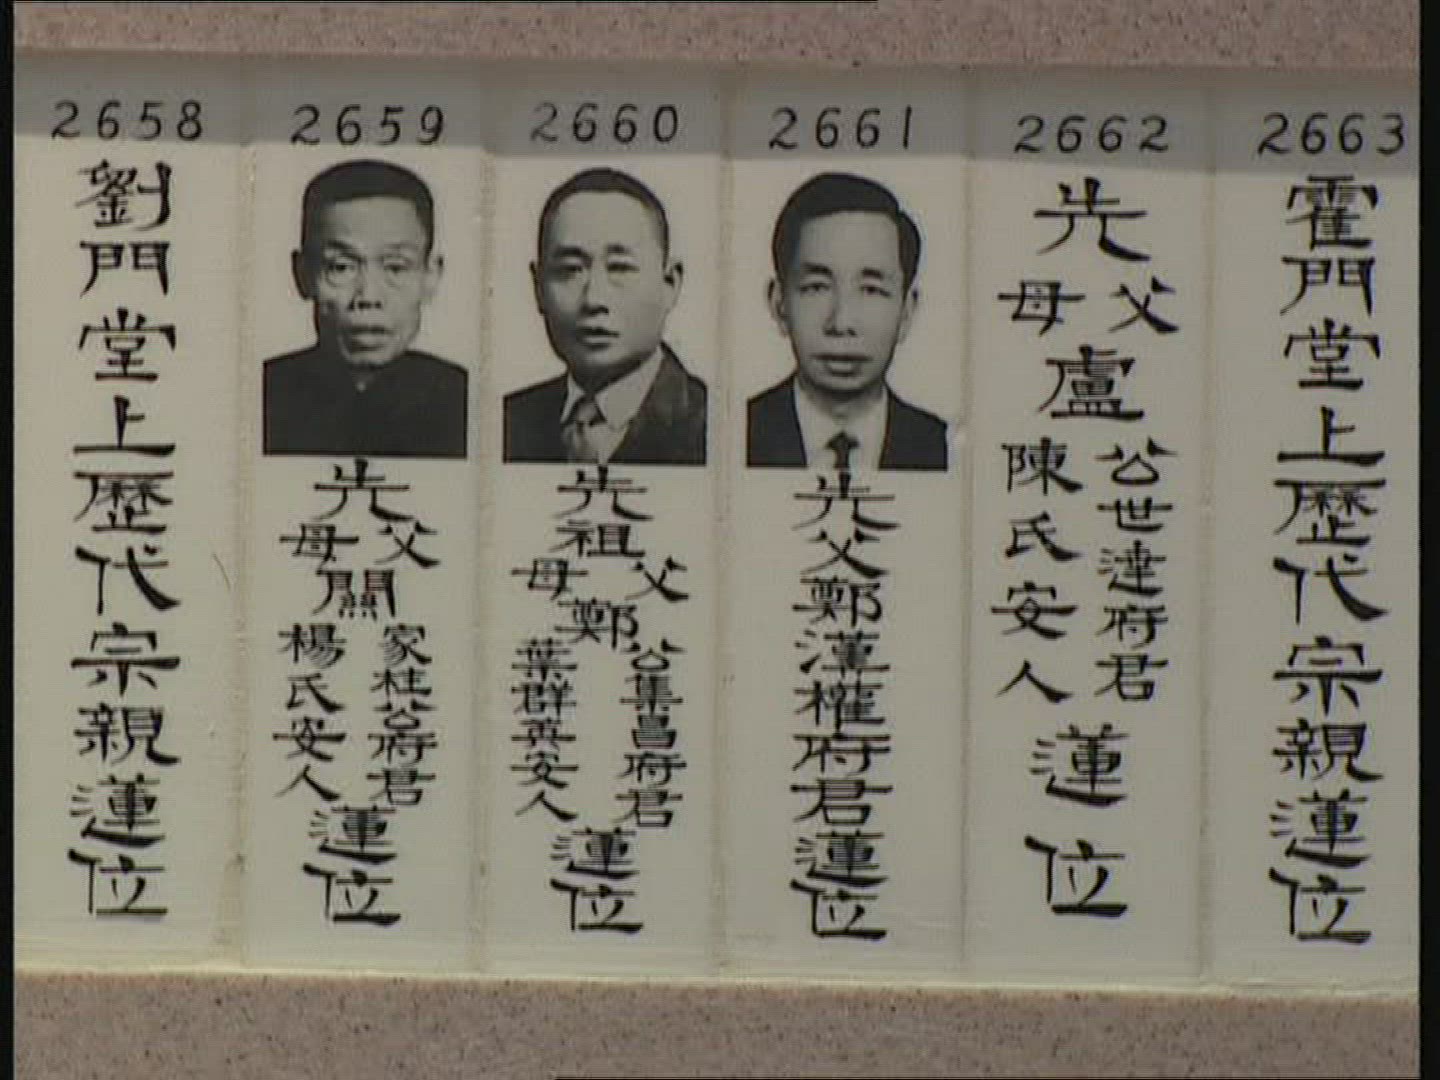 2658
劉門堂上歷代宗親蓮位
2659
先父母關
家柱公府君
楊氏安人
蓮位
2660
先祖父母鄭
公集昌府君
葉群英安人
蓮位
2661
先父鄭漢權府君蓮位
2662
先父母盧
公世達府君
陳氏安人
蓮位
2663
霍門堂上歷代宗親蓮位